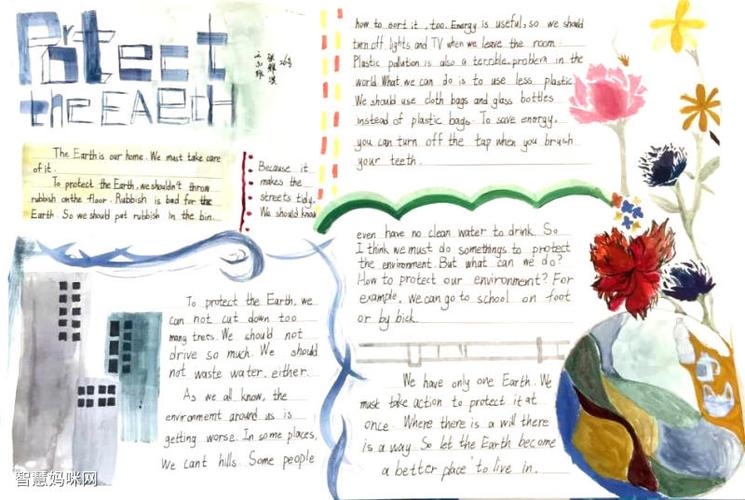 Protect
the EARTH
The Earth is our home. We must take care
of it.
To protect the Earth, we shouldn't throw
rubbish on the floor. Rubbish is bad for the
Earth. So we should put rubbish in the bin.
Because it
makes the
streets tidy.
We should know
how to sort it, too. Energy is useful, so we should
turn off lights and TV when we leave the room.
Plastic pollution is also a terrible problem in the
world. What we can do is to use less plastic.
We should use cloth bags and glass bottles
instead of plastic bags. To save energy,
you can turn off the tap when you brush
your teeth.
To protect the Earth, we
can not cut down too
many trees. We should not
drive so much. We should
not waste water either.
As we all know, the
environment around us is
getting worse. In some places,
We cant hills. Some people
even have no clean water to drink. So
I think we must do somethings to protect
the environment. But what can we do?
How to protect our environment? For
example, we can go to school on foot
or by bick.
We have only one Earth. We
must take action to protect it at
once. Where there is a will there
is a way. So let the Earth become
a better place to live in.
智慧妈咪网